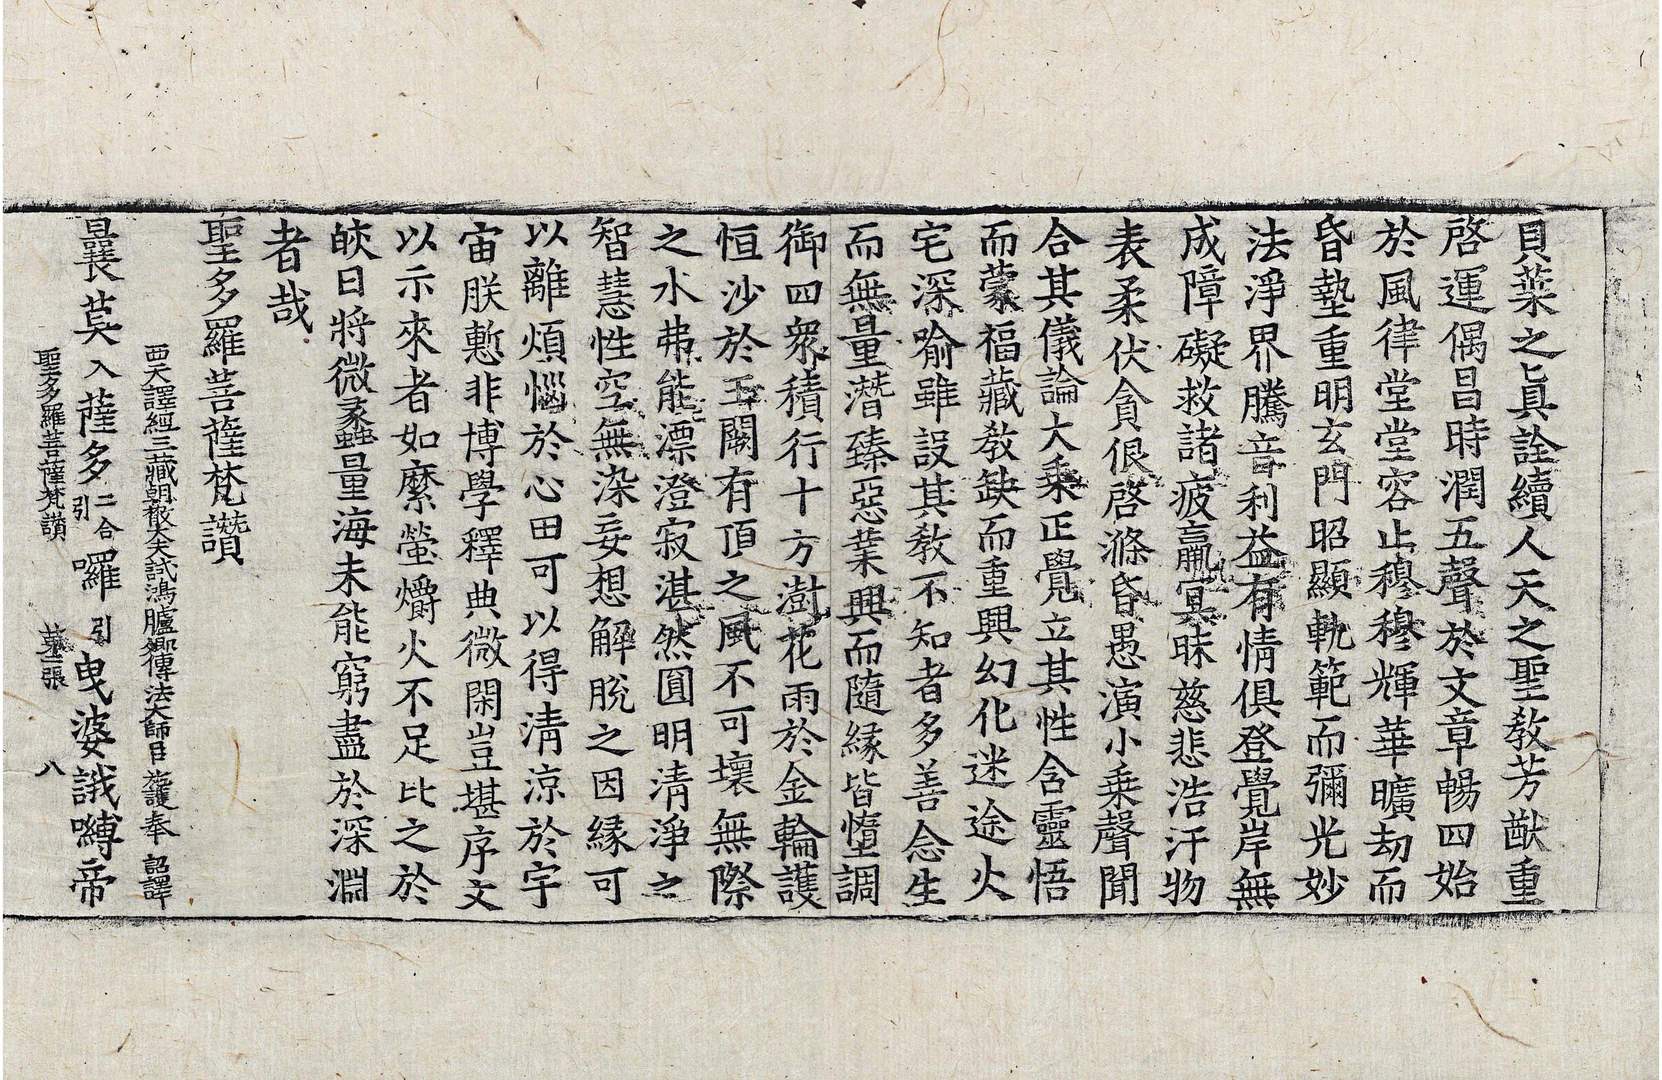 貝葉之眞詮續人天之聖敎芳猷重
啓運偶昌時潤五聲於文章暢四始
於風律堂堂容止穆穆輝華曠劫而
昏墊重明玄門昭顯軌範而彌光妙
法淨界騰音利益有情俱登覺岸無
成障礙救諸疲羸冥昧慈悲浩汗物
表柔伏貪佷啓滌昏愚演小乘聲聞
合其儀論大乘正覺立其性含靈悟
而蒙福藏敎缺而重興幻化迷途火
宅深喻雖設其敎不知者多善念生
而無量潛臻惡業興而隨緣皆墮調
御四衆積行十方澍花雨於金輪護
恒沙於玉闕有頂之風不可壞無際
之水弗能漂澄寂湛然圓明淸淨之
智慧性空無染妄想解脫之因緣可
以離煩惱於心田可以得淸涼於宇
宙朕慙非博學釋典微閑豈堪序文
以示來者如縻螢爝火不足比之於
皎日將微蠡量海未能窮盡於深淵
者哉
聖多羅菩薩梵讚
西天譯經三藏朝散大夫試鴻臚卿傳法大師臣施護奉 詔譯
曩莫入薩多二合引囉引曳婆誐嚩帝
聖多羅菩薩梵讚 第一張 八